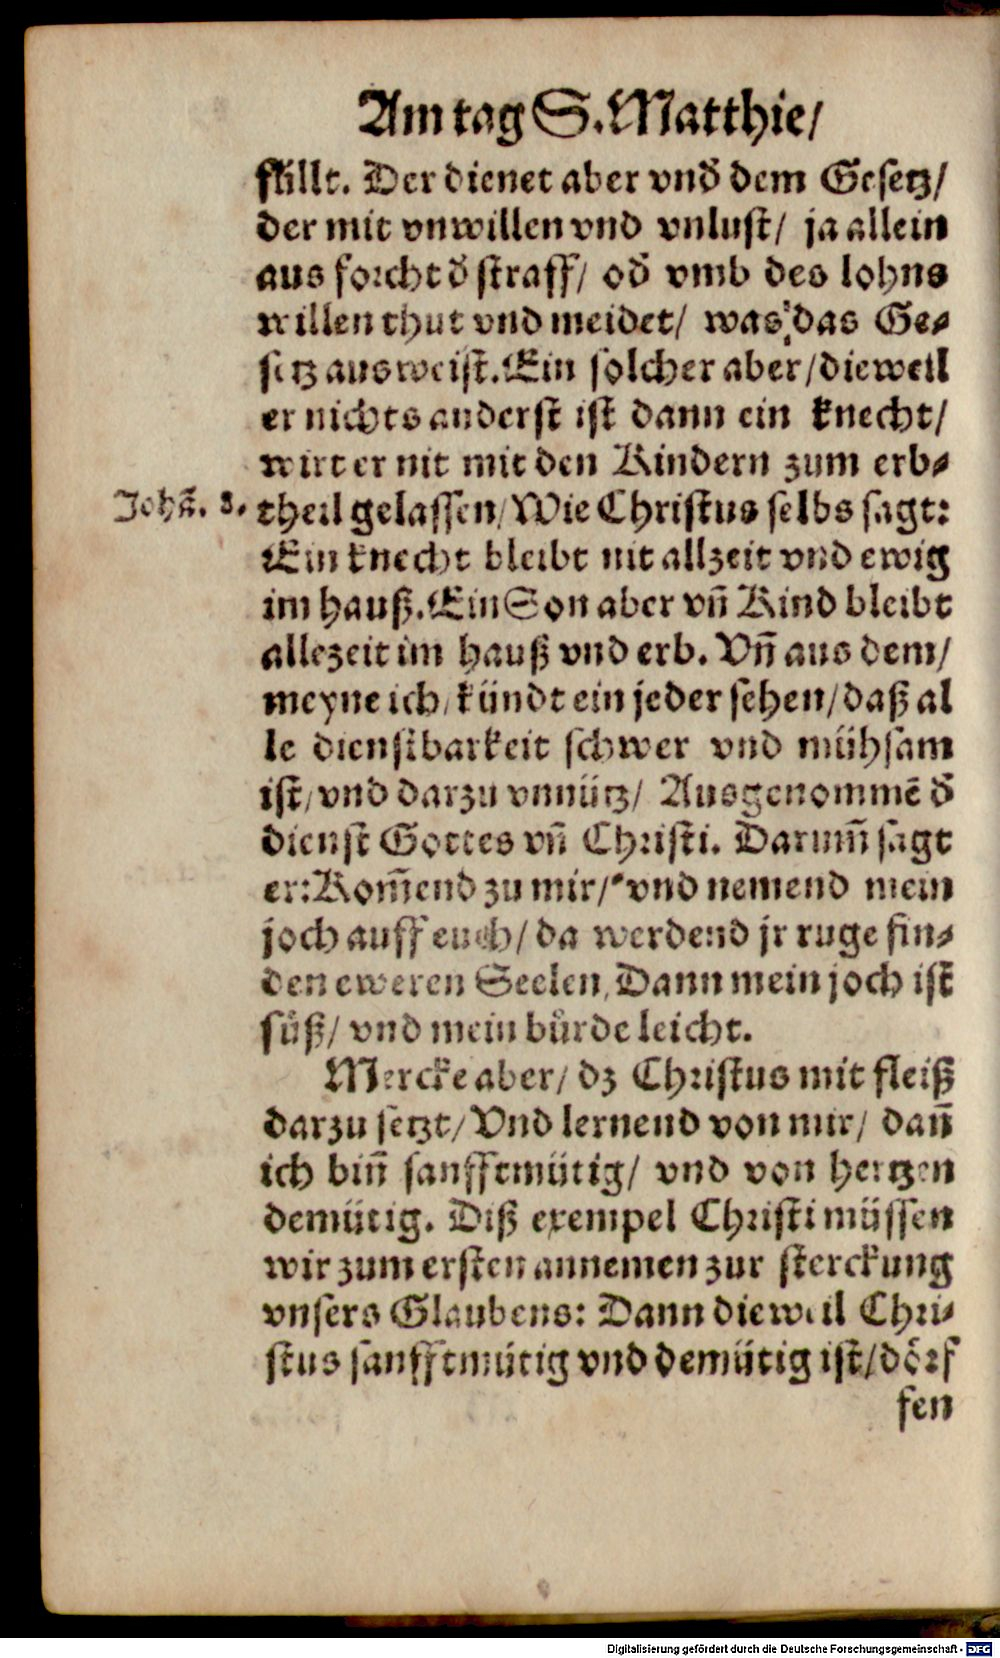 Am tag S. Matthie/
füllt. Der dienet aber vnd̄ dem Gesetz/
der mit vnwillen vnd vnlust/ ja allein
aus forcht d̄ straff/ od̄ vmb des lohns
willen thut vnd meidet/ was das Ge-
setz ausweist. Ein solcher aber/ dieweil
er nichts anderst ist dann ein knecht/
wirt er nit mit den Kindern zum erb-
Johā. 8. theil gelassen/ Wie Christus selbs sagt:
Ein knecht bleibt nit allzeit vnd ewig
im hauß. Ein Son aber vn̄ Kind bleibt
allezeit im hauß vnd erb. Vn̄ aus dem/
meyne ich/ kündt ein jeder sehen/ daß al
le dienstbarkeit schwer vnd mühsam
ist/ vnd darzu vnnütz/ Ausgenommē d̄
dienst Gottes vn̄ Christi. Darum̄ sagt
er: Kom̄end zu mir/ vnd nemend mein
joch auff euch/ da werdend jr ruge fin-
den eweren Seelen, Dann mein joch ist
süß/ vnd mein bůrde leicht.
Mercke aber/ dz Christus mit fleiß
darzu setzt/ Vnd lernend von mir/ dan̄
ich bin̄ sanfftmütig/ vnd von hertzen
demütig. Diß exempel Christi müssen
wir zum ersten annemen zur sterckung
vnsers Glaubens: Dann dieweil Chri-
stus sanfftmütig vnd demütig ist/ dörf
fen
Digitalisierung gefördert durch die Deutsche Forschungsgemeinschaft - DFG